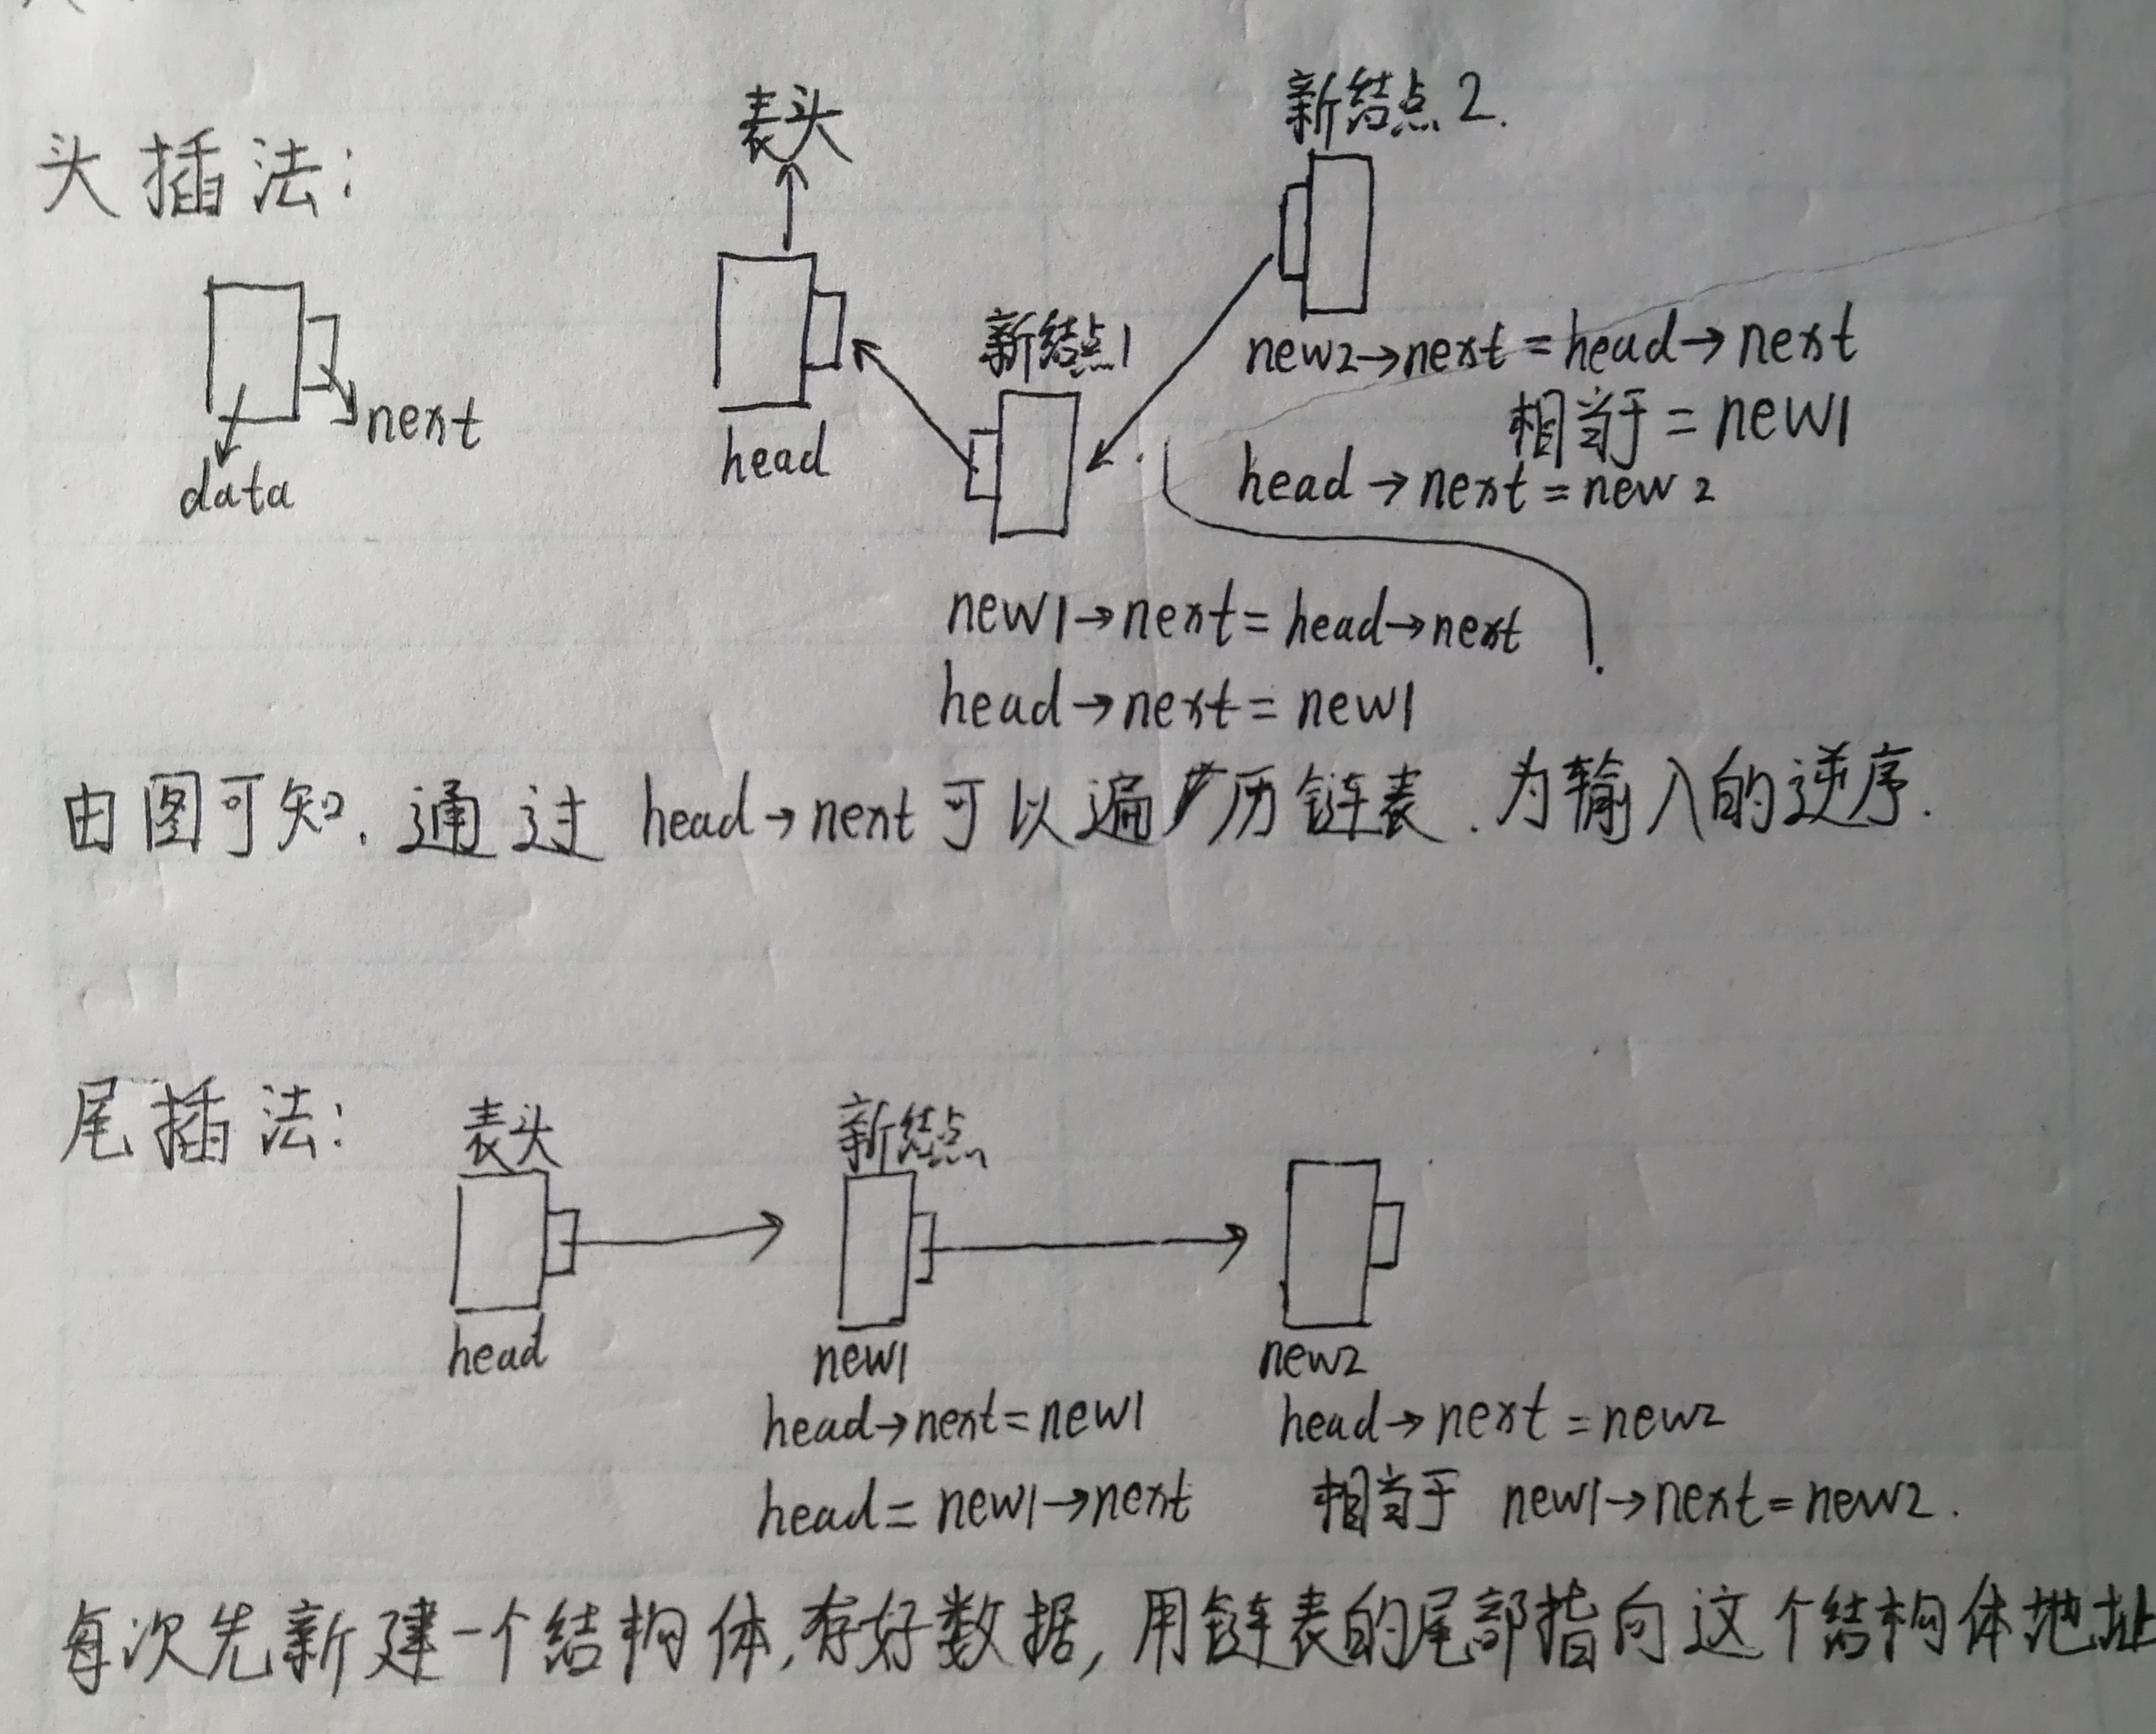 头插法:
表头
新结点2.
data
next
head
新结点1
new2→next=head→next
相当于=new1
head→next=new2
new1→next=head→next
head→next=new1
由图可知.通过head→next可以遍历链表.为输入的逆序.
尾插法:
表头
新结点
head
new1
new2
head→next=new1
head=new1→next
head→next=new2
相当于 new1→next=new2.
每次先新建一个结构体,存好数据,用链表的尾部指向这个结构体地址